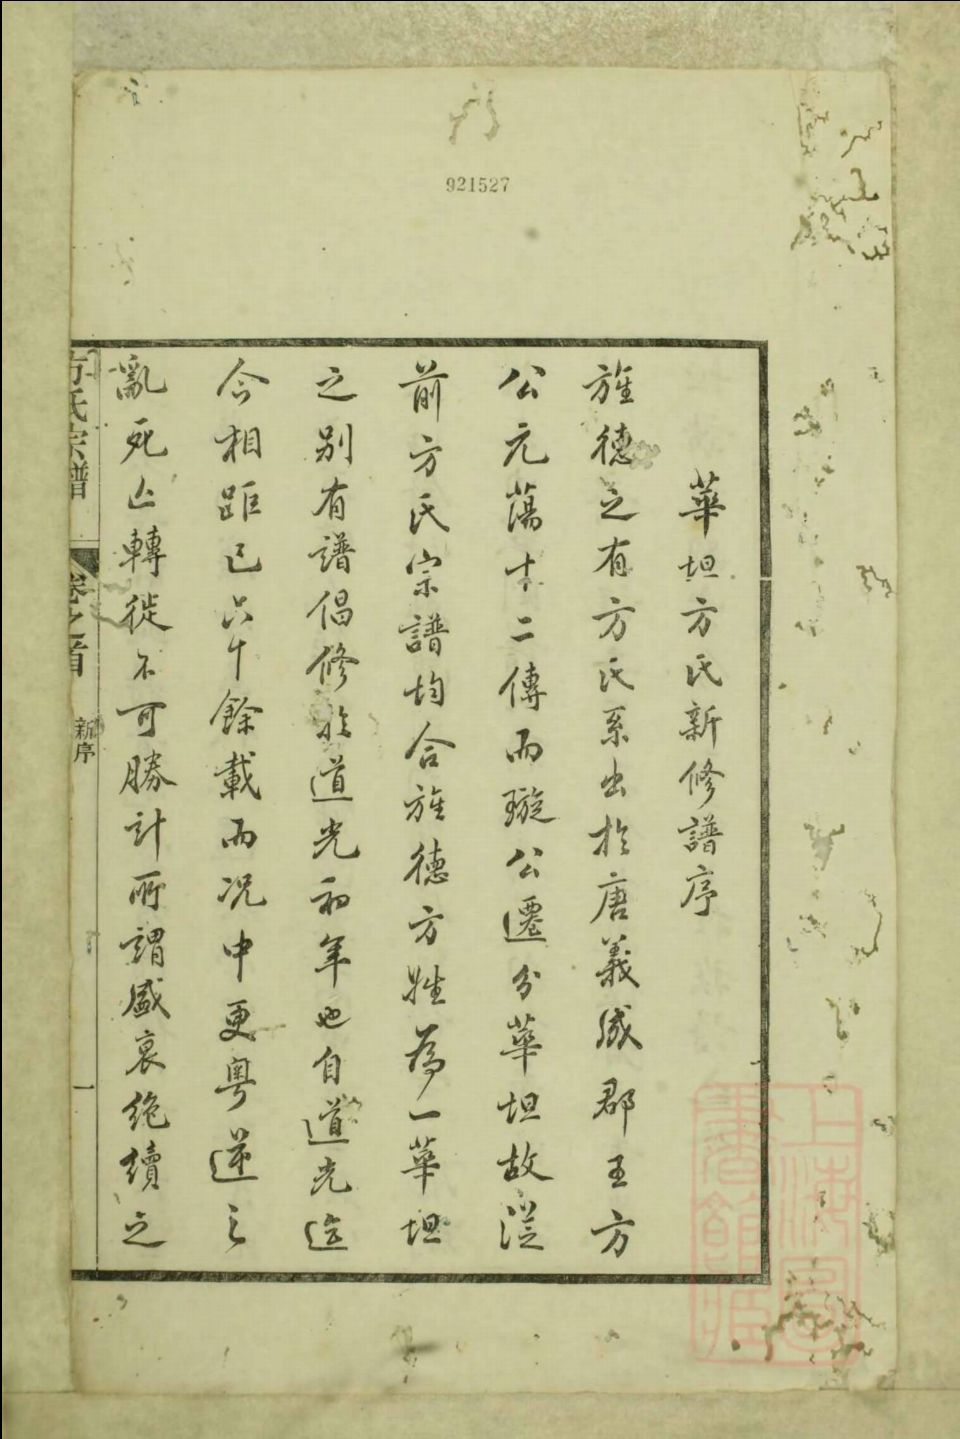 921527
華坦方氏新修譜序
旌德之有方氏系出於唐義成郡王方
公元蕩十二傳而璇公遷分華坦故從
前方氏宗譜均合旌德方姓為一華坦
之別有譜倡修於道光初年也自道光迄
今相距已六十餘載而况中更粤逆之
亂死亡轉徙不可勝計所謂盛衰絶續之
方氏宗譜
卷之首
新序
一
上海圖書館藏